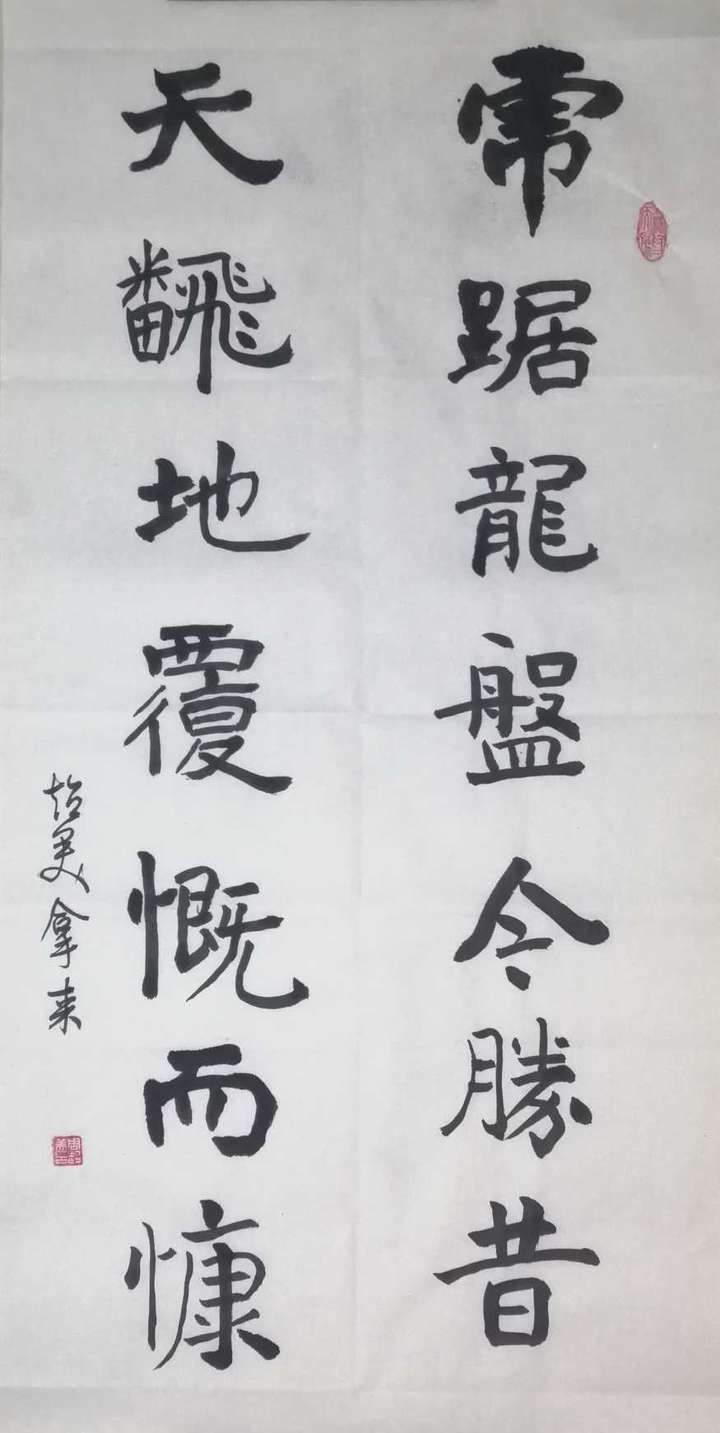 虎踞龍盤今勝昔
天飜地覆慨而慷
超美拿来